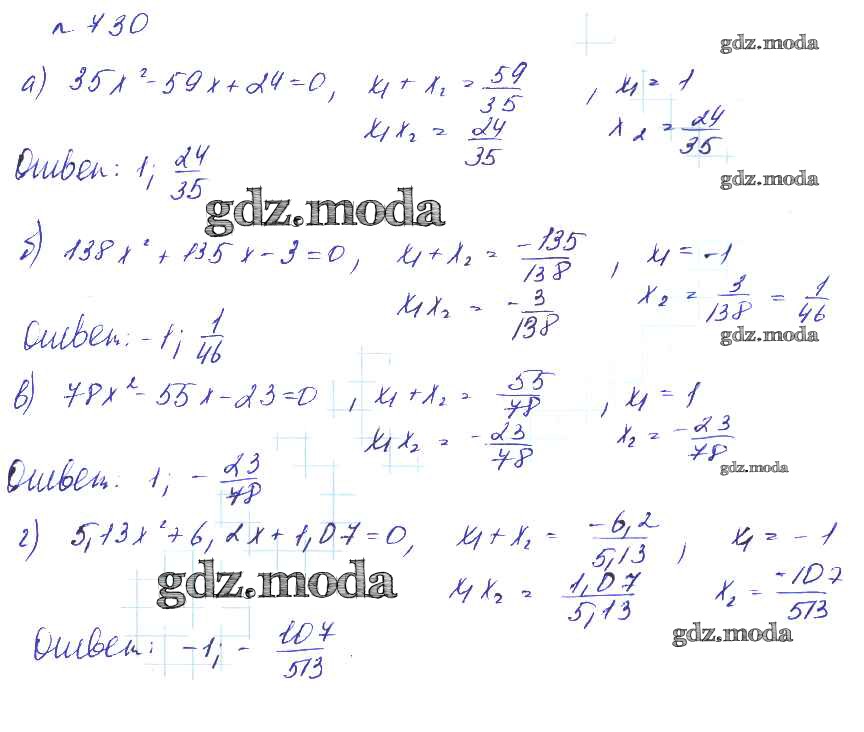 № 730
gdz.moda
а) 35x² - 59x + 24 = 0, x₁ + x₂ = 59/35, x₁ = 1
x₁x₂ = 24/35 x₂ = 24/35
Ответ: 1; 24/35
gdz.moda
gdz.moda
б) 138x² + 135x - 3 = 0, x₁ + x₂ = -135/138, x₁ = -1
x₁x₂ = -3/138 x₂ = 3/138 = 1/46
Ответ: -1; 1/46
gdz.moda
в) 78x² - 55x - 23 = 0, x₁ + x₂ = 55/78, x₁ = 1
x₁x₂ = -23/78 x₂ = -23/78
Ответ: 1; -23/78
gdz.moda
г) 5,13x² + 6,2x + 1,07 = 0, x₁ + x₂ = -6,2/5,13; x₁ = -1
gdz.moda
x₁x₂ = 1,07/5,13 x₂ = -107/513
gdz.moda
Ответ: -1; -107/513.